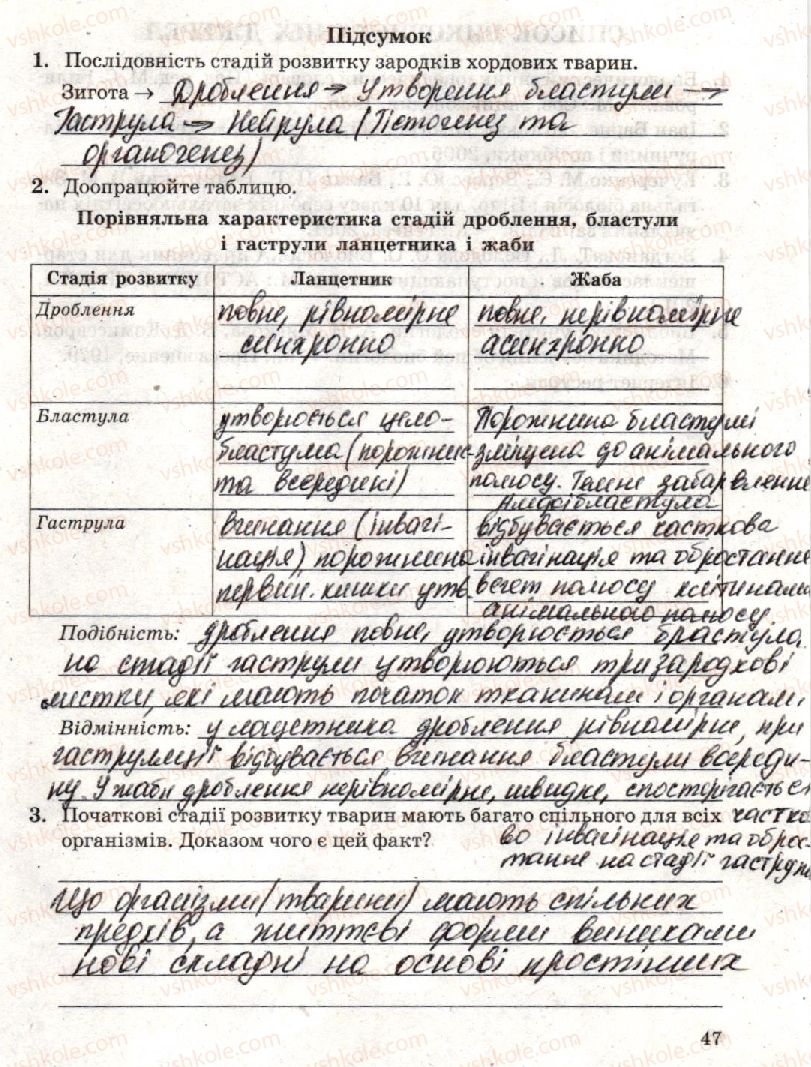 Підсумок
1. Послідовність стадій розвитку зародків хордових тварин.
Зигота → Дроблення → Утворення бластули →
Гаструла → Нейрула (Гістогенез та
органогенез)
2. Доопрацюйте таблицю.
Порівняльна характеристика стадій дроблення, бластули
і гаструли ланцетника і жаби
Стадія розвитку Ланцетник Жаба
Дроблення
повне, рівномірне
синхронно
повне, нерівномірне
асинхронно
Бластула
утворюється цело-
бластула (порожнис-
та всередині)
Порожнина бластулі
зміщена до анімального
полюсу. Темне забарвлення
Амфібластула
Гаструла
вгинання (інвагі-
нація) порожнина
первин. кишки утв.
відбувається часткова
інвагінація та обростання
вегет полюсу клітинами
анімального полюсу.
Подібність: дроблення повне, утворюється бластула,
на стадії гаструли утворюються три зародкові
листки, які мають початок тканинам і органам
Відмінність: у ланцетника дроблення рівномірне, при
гаструляції відбувається вгинання бластули всереди-
ну. У жаби дроблення нерівномірне, швидке, спостерігається
3. Початкові стадії розвитку тварин мають багато спільного для всіх частко
організмів. Доказом чого є цей факт? во інвагінація та оброс-
тання на стадії гаструли
Що організми (тварини) мають спільних
предків, а життєві форми виникали
нові складні на основі простіших
47